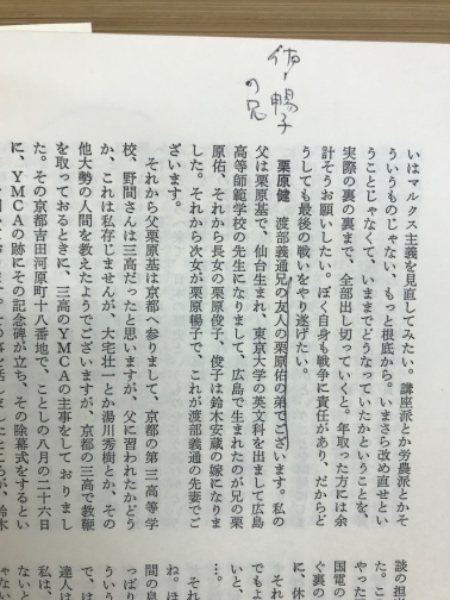 佑・暢子
の兄
いはマルクス主義を見直してみたい。講座派とか労農派とかそ
ういうものじゃない、もっと根底から。いまさら改め直せとい
うことじゃなくて、いままでどうなっていたかということを、
実際の裏の裏まで、全部出し切っていくと。年取った方には余
計そうお願いしたい。ぼく自身も戦争に責任があり、だからど
うしても最後の戦いをやり遂げたい。
栗原健　渡部義通兄の友人の栗原佑の弟でございます。私の
父は栗原基で、仙台生まれ、東京大学の英文科を出まして広島
高等師範学校の先生になりまして、広島で生まれたのが兄の栗
原佑、それから長女の栗原俊子、俊子は鈴木安蔵の嫁になりま
した。それから次女が栗原暢子で、これが渡部義通の先妻でご
ざいます。
それから父栗原基は京都へ参りまして、京都の第三高等学
校、野間さんは三高だったと思いますが、父に習われたかどう
か、これは私存じませんが、大宅壮一とか湯川秀樹とか、その
他大勢の人間を教えたようでございますが、京都の三高で教鞭
を取っておるときに、三高のYMCAの主事をしておりまし
た。その京都吉田河原町十八番地で、ことしの八月の二十六日
に、YMCAの跡にその記念碑が立ち、その除幕式をするとい
談の担
た。こ
やった
国電の
ぐ裏の
に、休
でもよ
いと、
…。
それ
ね。ほ
間の息
っぱり
ういう
で、は
達人は
私は、
ないと